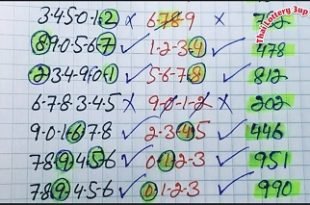 3·4·5·0·1·2 × 6·7·8·9 × 7 2
8·9·0·5·6·7 ✓ 1-2-3-4 ✓ 478
2·3·4·9·0·1 ✓ 5·6·7·8 ✓ 812
6·7·8·3·4·5 X 9-0-1-2 × 202
9·0·1·6·7·8 ✓ 2·3·4·5 ✓ 446
7·8·9·4·5·6 ✓ 0·1·2·3 ✓ 951
7·8·9·4·5·6 ✓ 0·1·2·3 ✓ 990
Thai Lottery 3up